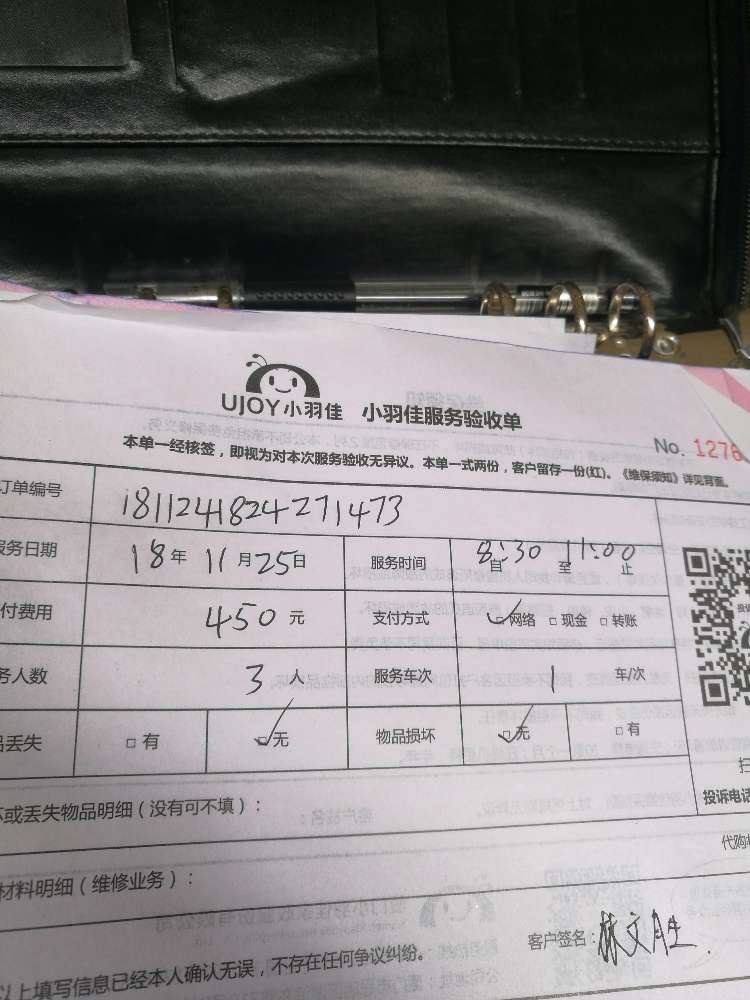 UJOY小羽佳 小羽佳服务验收单
No. 1276
本单一经核签，即视为对本次服务验收无异议。本单一式两份，客户留存一份(红)。《维保须知》详见背面。
订单编号 181124182427 1473
服务日期 18年 11月25日 服务时间 8:30 自 至 11:00 止
付费用 450 元 支付方式 网络 现金 转账
务人数 3 人 服务车次 1 车/次
品丢失 有 无 物品损坏 无 有
坏或丢失物品明细（没有可不填）：
投诉电话
代购
材料明细（维修业务）：
客户签名：林文胜
以上填写信息已经本人确认无误，不存在任何争议纠纷。